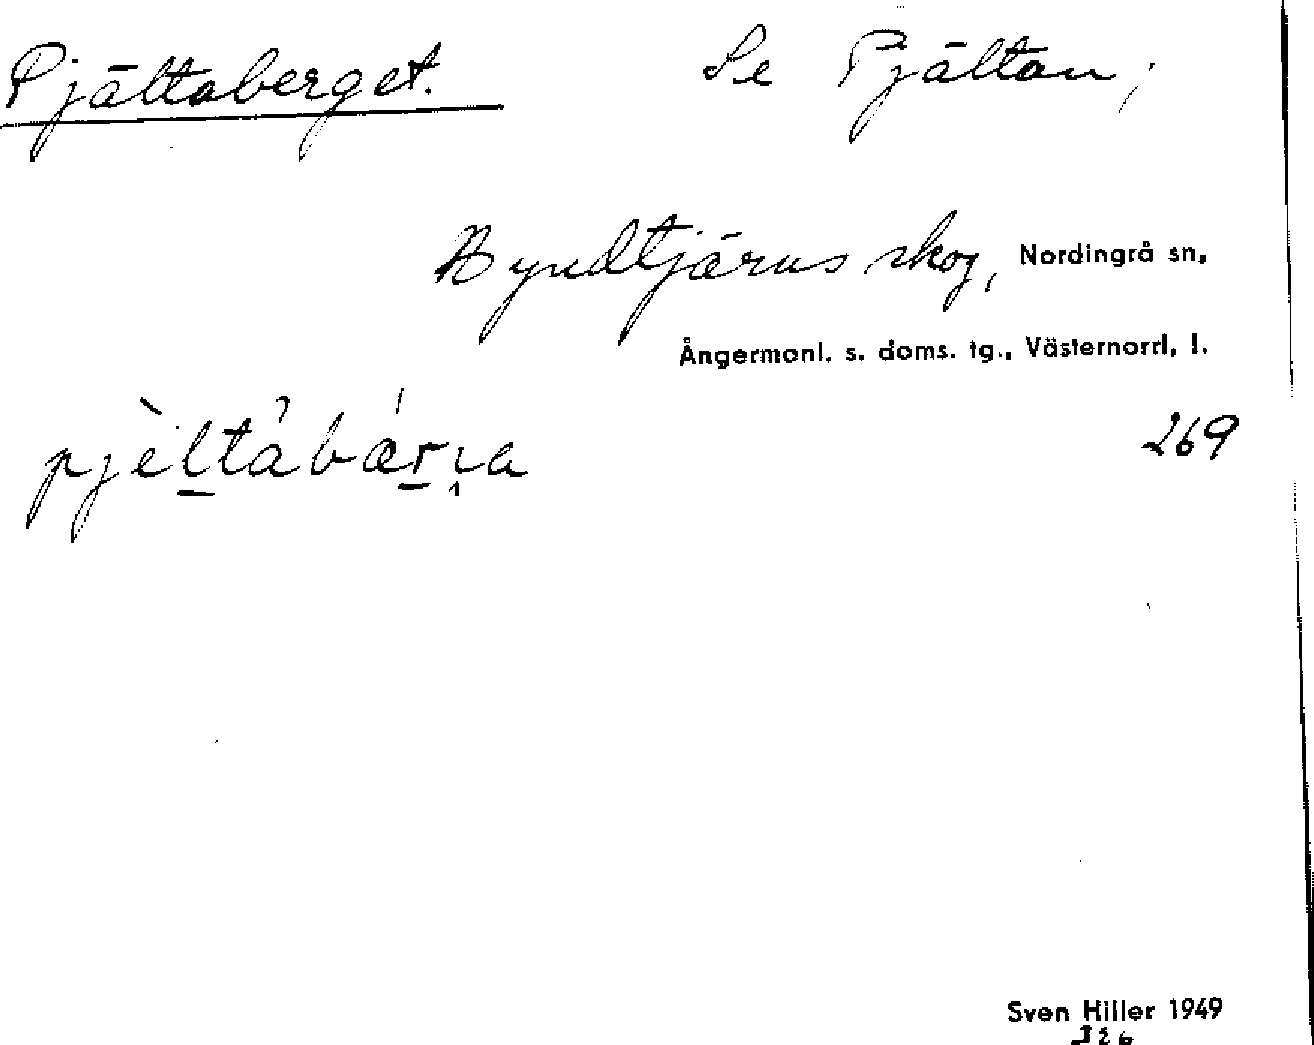 Pjältaberget. Se Pjältan;
Byndtjärns skog, Nordingrå sn,
Ångermanl. s. doms. tg., Västernorrl. l.
269
Sven Hiller 1949
326